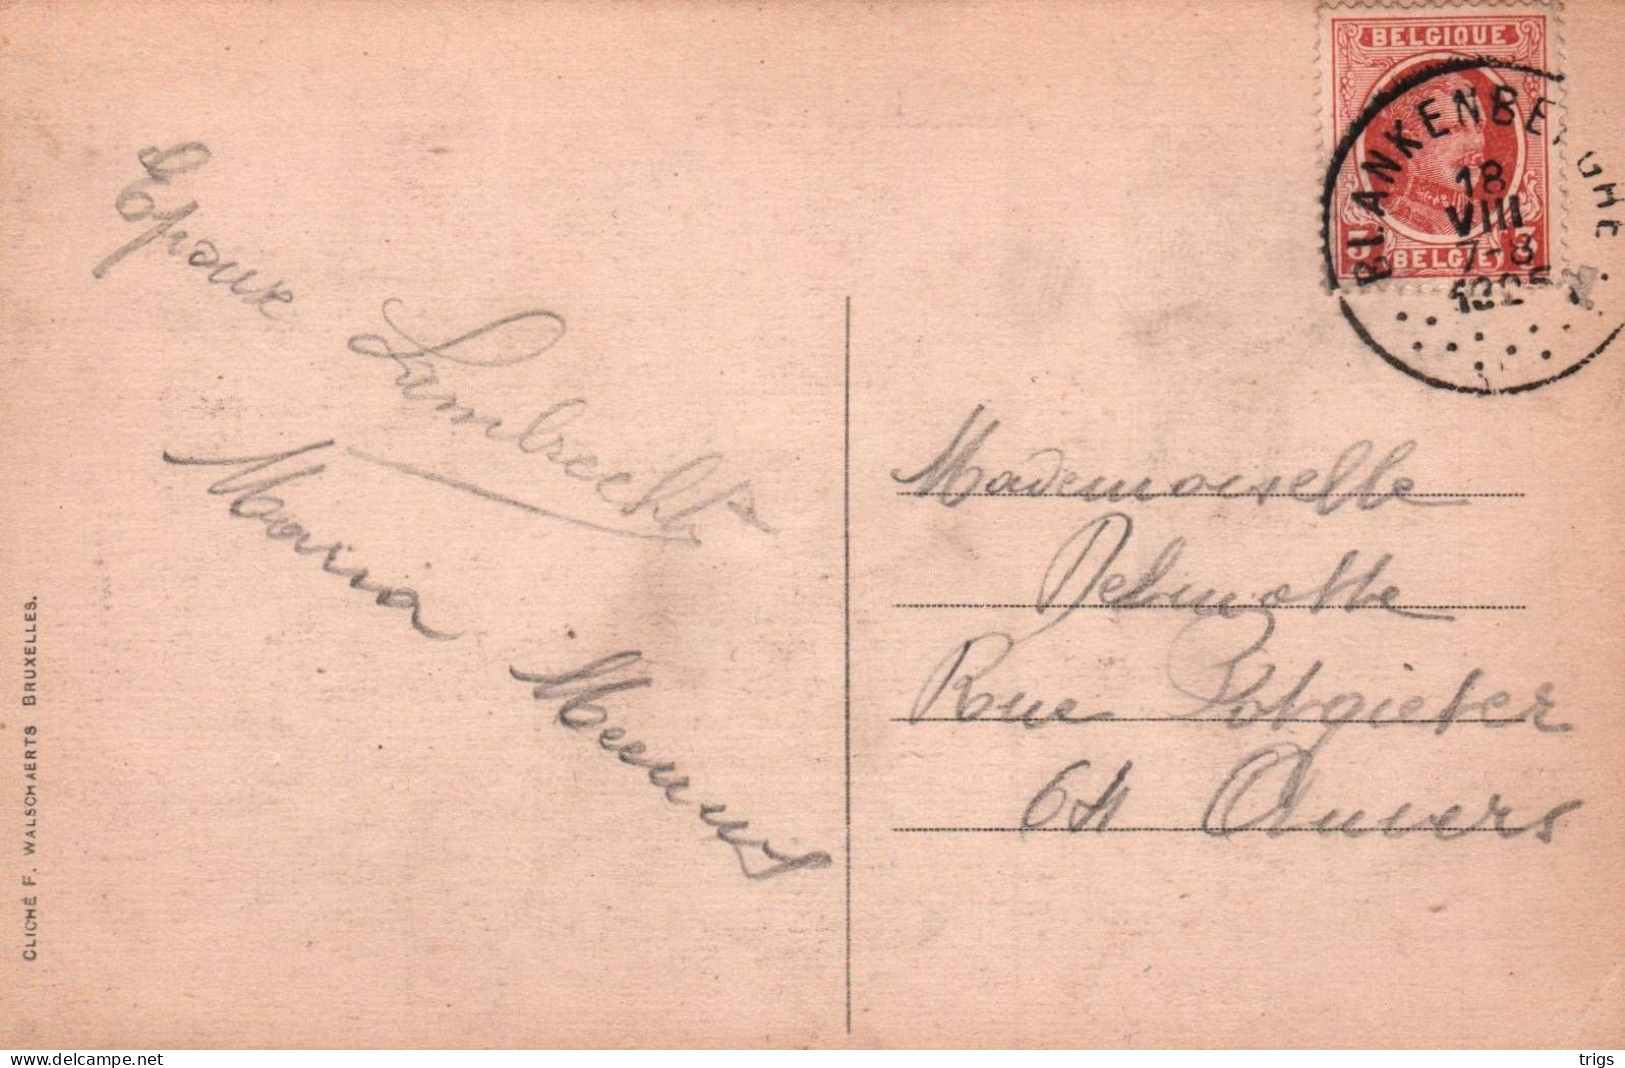 Epoux
Lambrecht
Maria Meeuws
CLICHÉ F. WALSCHAERTS BRUXELLES.
BELGIQUE
BELGIË
BLANKENBERGHE
18
VIII
7-8
1925
Mademoiselle
Delmotte
Rue Potgieter
64 Anvers
https://www.delcampe.net
trigs